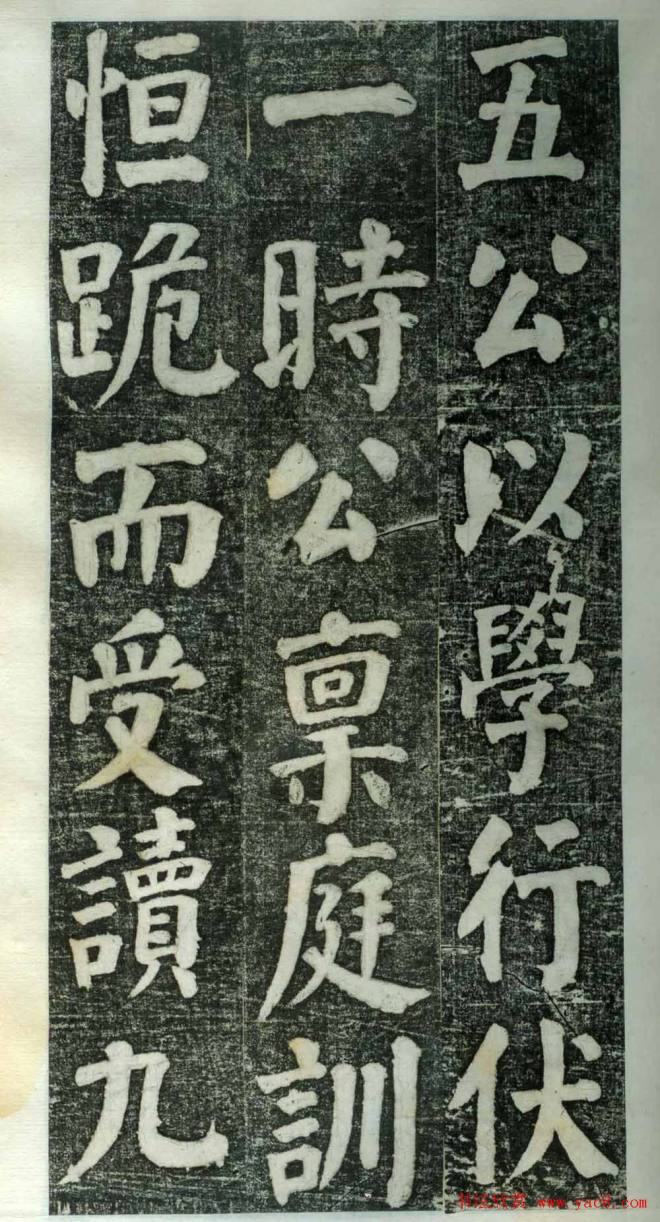 五公以學行伏
一時公稟庭訓
恒跪而受讀九
书法欣赏 www.yac8.com